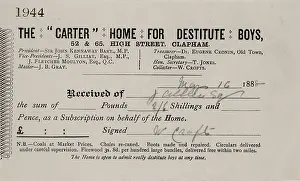 1944
THE "CARTER" HOME FOR DESTITUTE BOYS,
52 & 65, HIGH STREET, CLAPHAM.
President—Sir John Kennaway Bart., M.P.
Vice-Presidents—J. S. Gilliat, Esq., M.P.
J. Fletcher Moulton, Esq., Q.C.
Master—J. B. Gray.
Treasurer—Dr. Eugene Cronin, Old Town, Clapham.
Hon. Secretary—T. Jones.
Collector—W. Crofts.
16 188
Received of
the sum of Pounds 2/6 Shillings and
Pence, as a Subscription on behalf of the Home.
£ : : Signed W Crofts
N.B.—Coals at Market Prices. Chairs re-caned. Boots made and repaired. Circulars delivered
under careful supervision. Firewood 3s. 8d. per hundred large bundles, delivered free within two miles.
The Home is open to admit really destitute boys at any time.